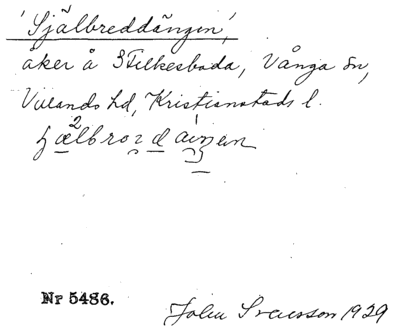 'Själbreddängen',
åker å 3 Filkesboda, Vånga sn,
Villands hd, Kristianstads l.
Nr 5486.
John Svensson 1929